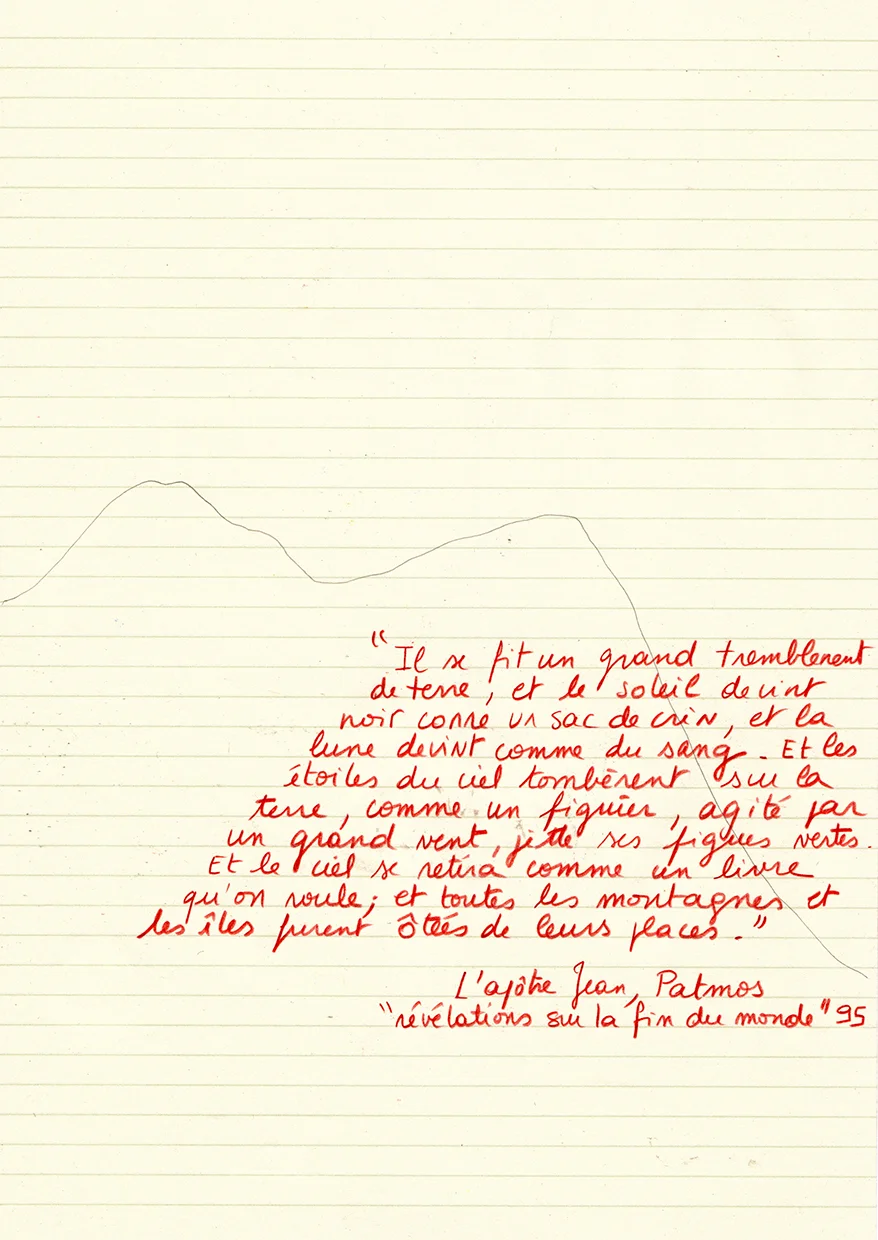 “Il se fit un grand tremblement
de terre, et le soleil devint
noir comme un sac de crin, et la
lune devint comme du sang. Et les
étoiles du ciel tombèrent sur la
terre, comme un figuier, agité par
un grand vent, jette ses figues vertes.
Et le ciel se retira comme un livre
qu'on roule; et toutes les montagnes et
les îles furent ôtées de leurs places.”
L'apôtre Jean, Patmos
“révélations sur la fin du monde” 95